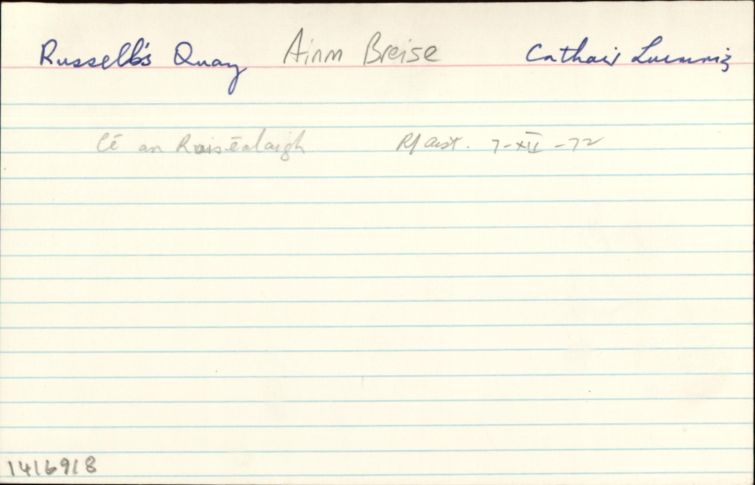 Russell's Quay Ainm Breise Cathair Luimnigh
Cé an Ruiséalaigh R/aist. 7-XII-72
1416918